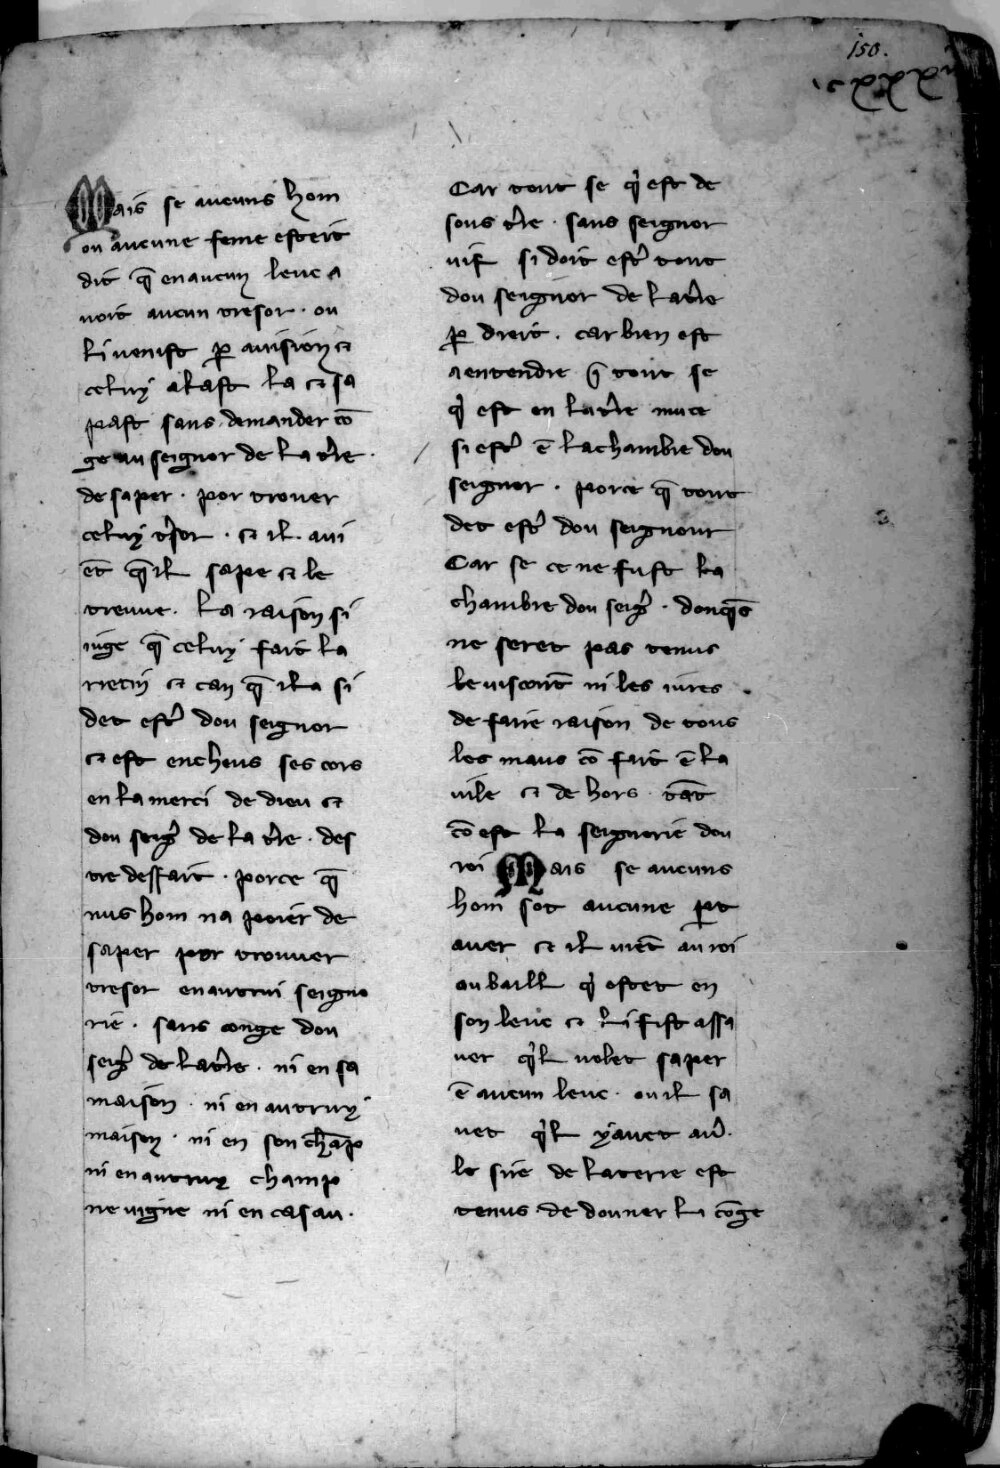 150.
Mais se aucuns hom
ou aucune feme esteit
dit q̄ en aucun leuc a
uoit aucun tresor · ou
li uenist p̲ auision ⁊
celuy alast la ⁊ sa
past sans demander cō
ge au seignor de la tr̄e ·
de saper · por trouer
celuy tr̄sor · ⁊ il aui
ēt q̄ il sape ⁊ le
treuue · la raison si
iuge q̄ celuy fait la
recin ⁊ can q̄ il a si
det estr̄ dou seignor
⁊ est encheus ses cors
en la merci de dieu ⁊
dou seigr̄ de la tr̄e · des
tre desfait · porce q̄
nus hom na poier de
saper por trouuer
tresor en autrui seigno
rie · sans conge dou
seigr̄ de la tr̄e · ni en sa
maison · ni en autruy
maison · ni en son chāp
ni en autruy champ
ne uigne ni en casau ·
Car tout se q̓ est de
sous tr̄e · sans seignor
uif si doit estr̄ tout
dou seignor de la tr̄e
p̲ dreit · car bien est
a entendre q̄ tout se
q̓ est en la tr̄e muce
si estr̄ ē la chambre dou
seignor · porce q̄ tout
det estr̄ dou seignour
Car se ce ne fust la
chambre dou seigr̄ · donq̄s
ne seret pas tenus
le uiscont ni les iures
de faire raison de tous
les maus cō fait ē la
uile ⁊ de hors · tāt
cō est la seignorie dou
roi Mais se aucuns
hom sot aucune p̲t
auer ⁊ il uiēt au roi
ou baill q̓ estet en
son leuc ⁊ li fist assa
uer q̓l uolet saper
ē aucun leuc · ou il sa
uet q̓l yauet aur̄ ·
le sire de la terre est
tenus de donner li cōge